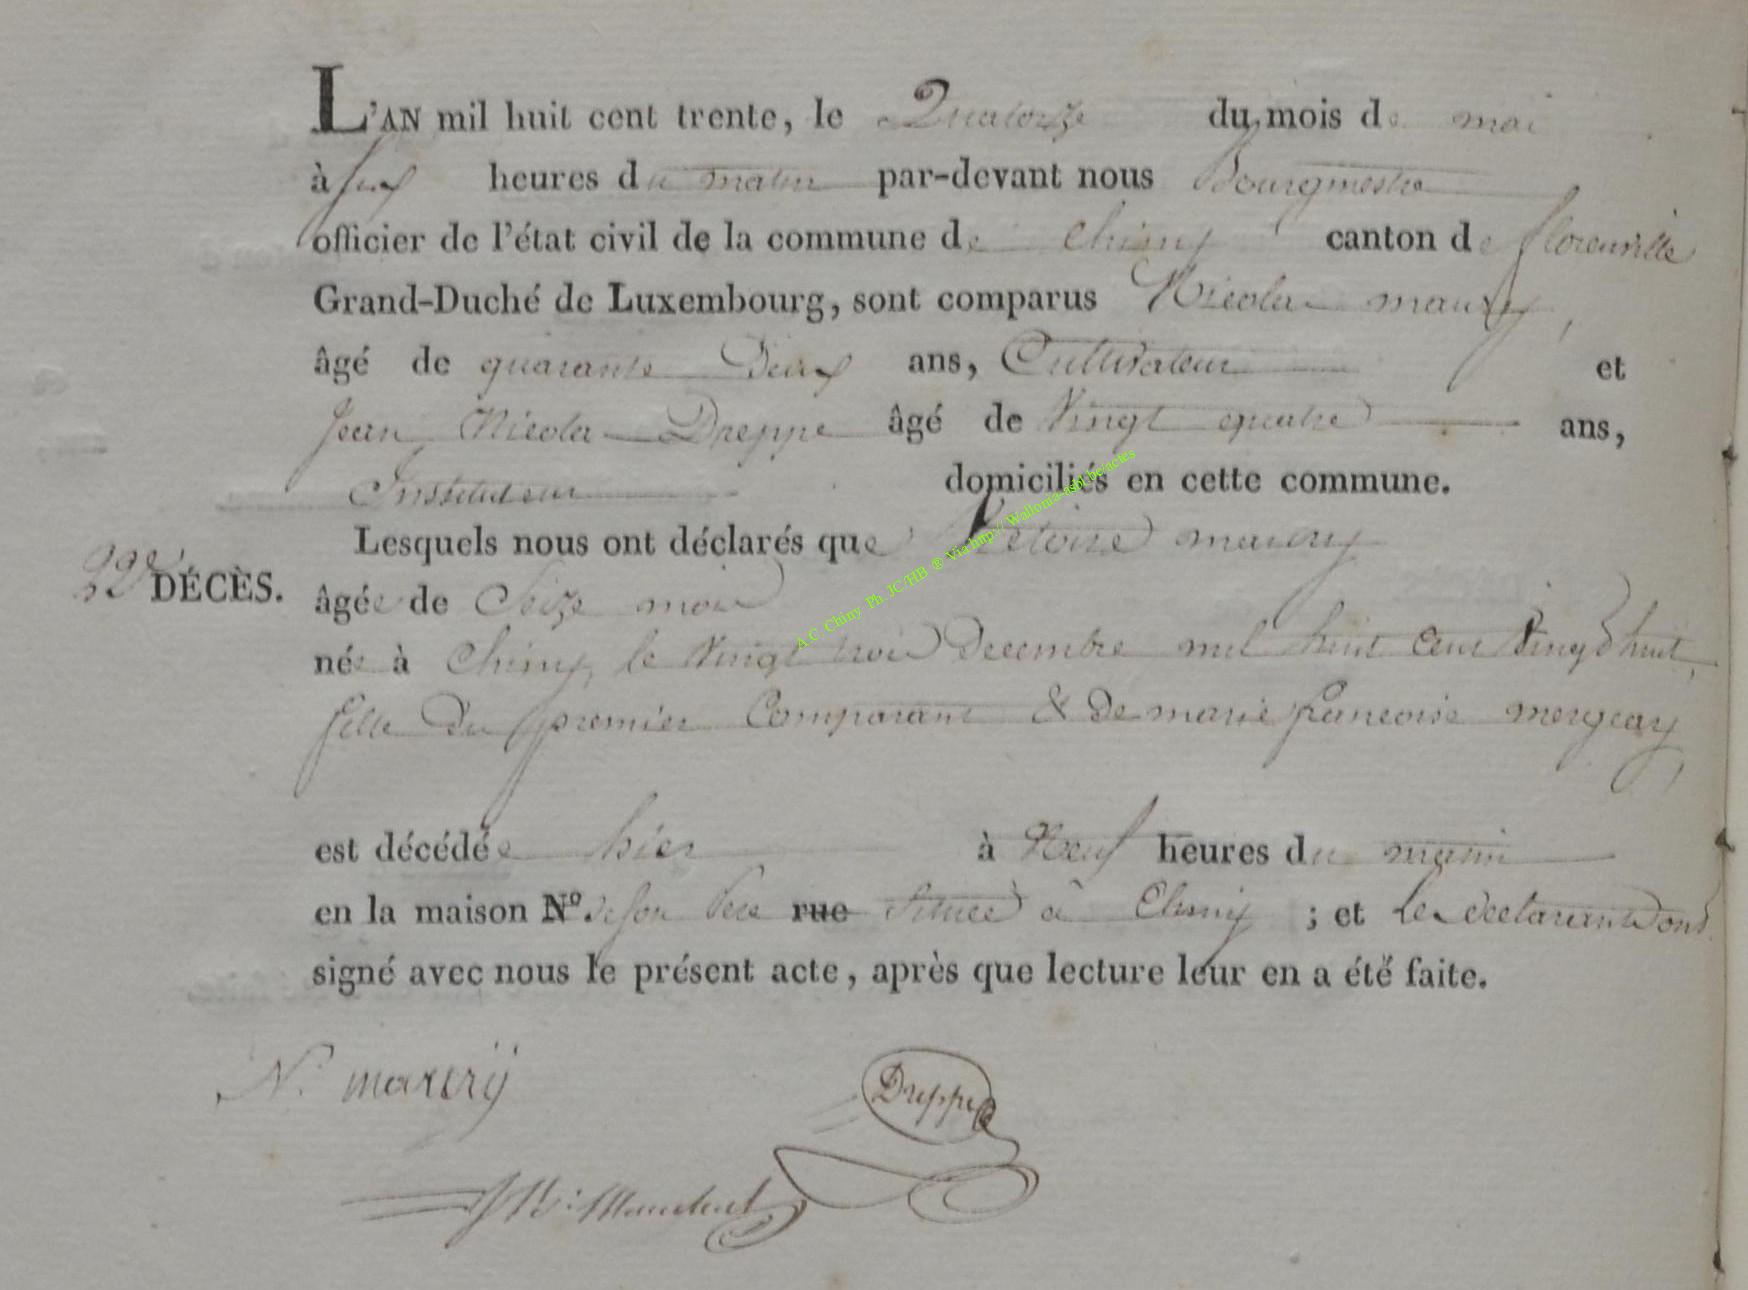 L'AN mil huit cent trente, le Quatorze du mois de mai
à six heures du matin par-devant nous Bourgmestre
officier de l'état civil de la commune de Chiny canton de florenville
Grand-Duché de Luxembourg, sont comparus Nicolas maury,
âgé de quarante Deux ans, Cultivateur et
Jean Nicolas Dreppe âgé de Vingt quatre ans,
Instituteur domiciliés en cette commune.
Lesquels nous ont déclarés que Victoire maury
DÉCÈS. âgée de Seize mois
née à Chiny, le Vingt trois Decembre mil huit Cent Vingt huit,
fille du premier Comparant & de marie francoise
est décédée hier à Neuf heures du matin
en la maison N.º de son Pere rue située à Chiny ; et les declarants ont
signé avec nous le présent acte, après que lecture leur en a été faite.
N. maury
Dreppe
A.C. Chiny Ph. JC/HB ® Via http://Wallonia-asbl.be/actes